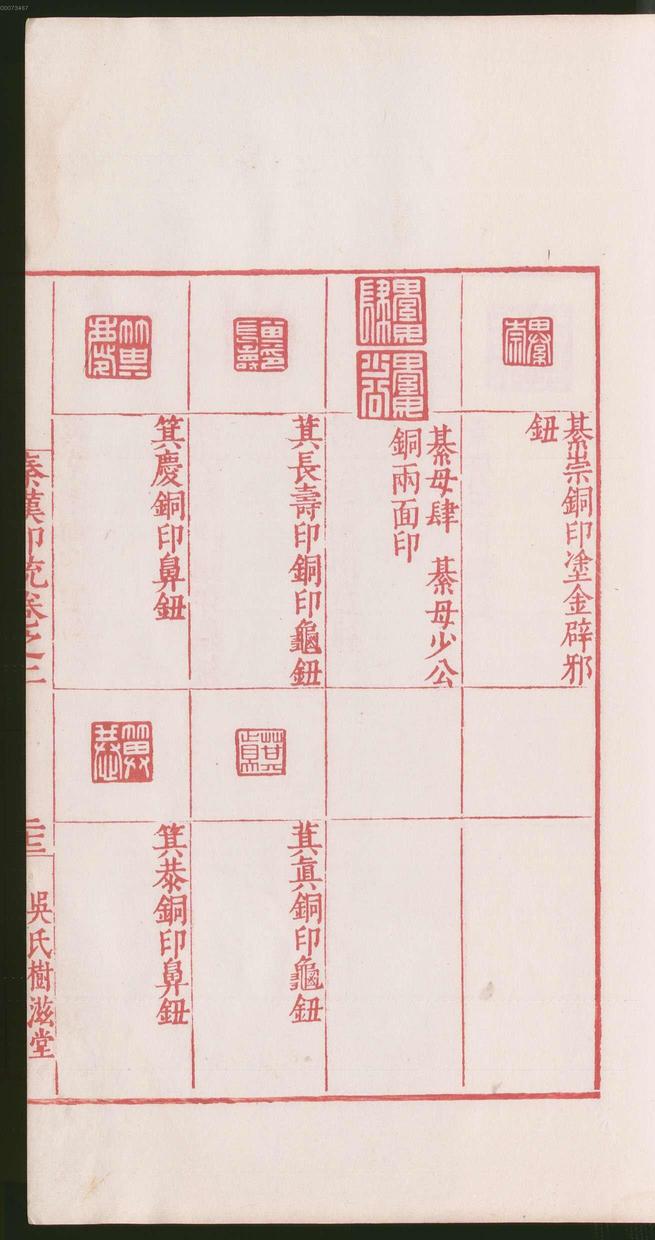 綦崇銅印塗金辟邪
鈕
綦毋肆　綦毋少公
銅兩面印
萁長壽印銅印龜鈕
萁真銅印龜鈕
箕慶銅印鼻鈕
箕恭銅印鼻鈕
秦漢印統卷之二
吳氏樹滋堂
00073467